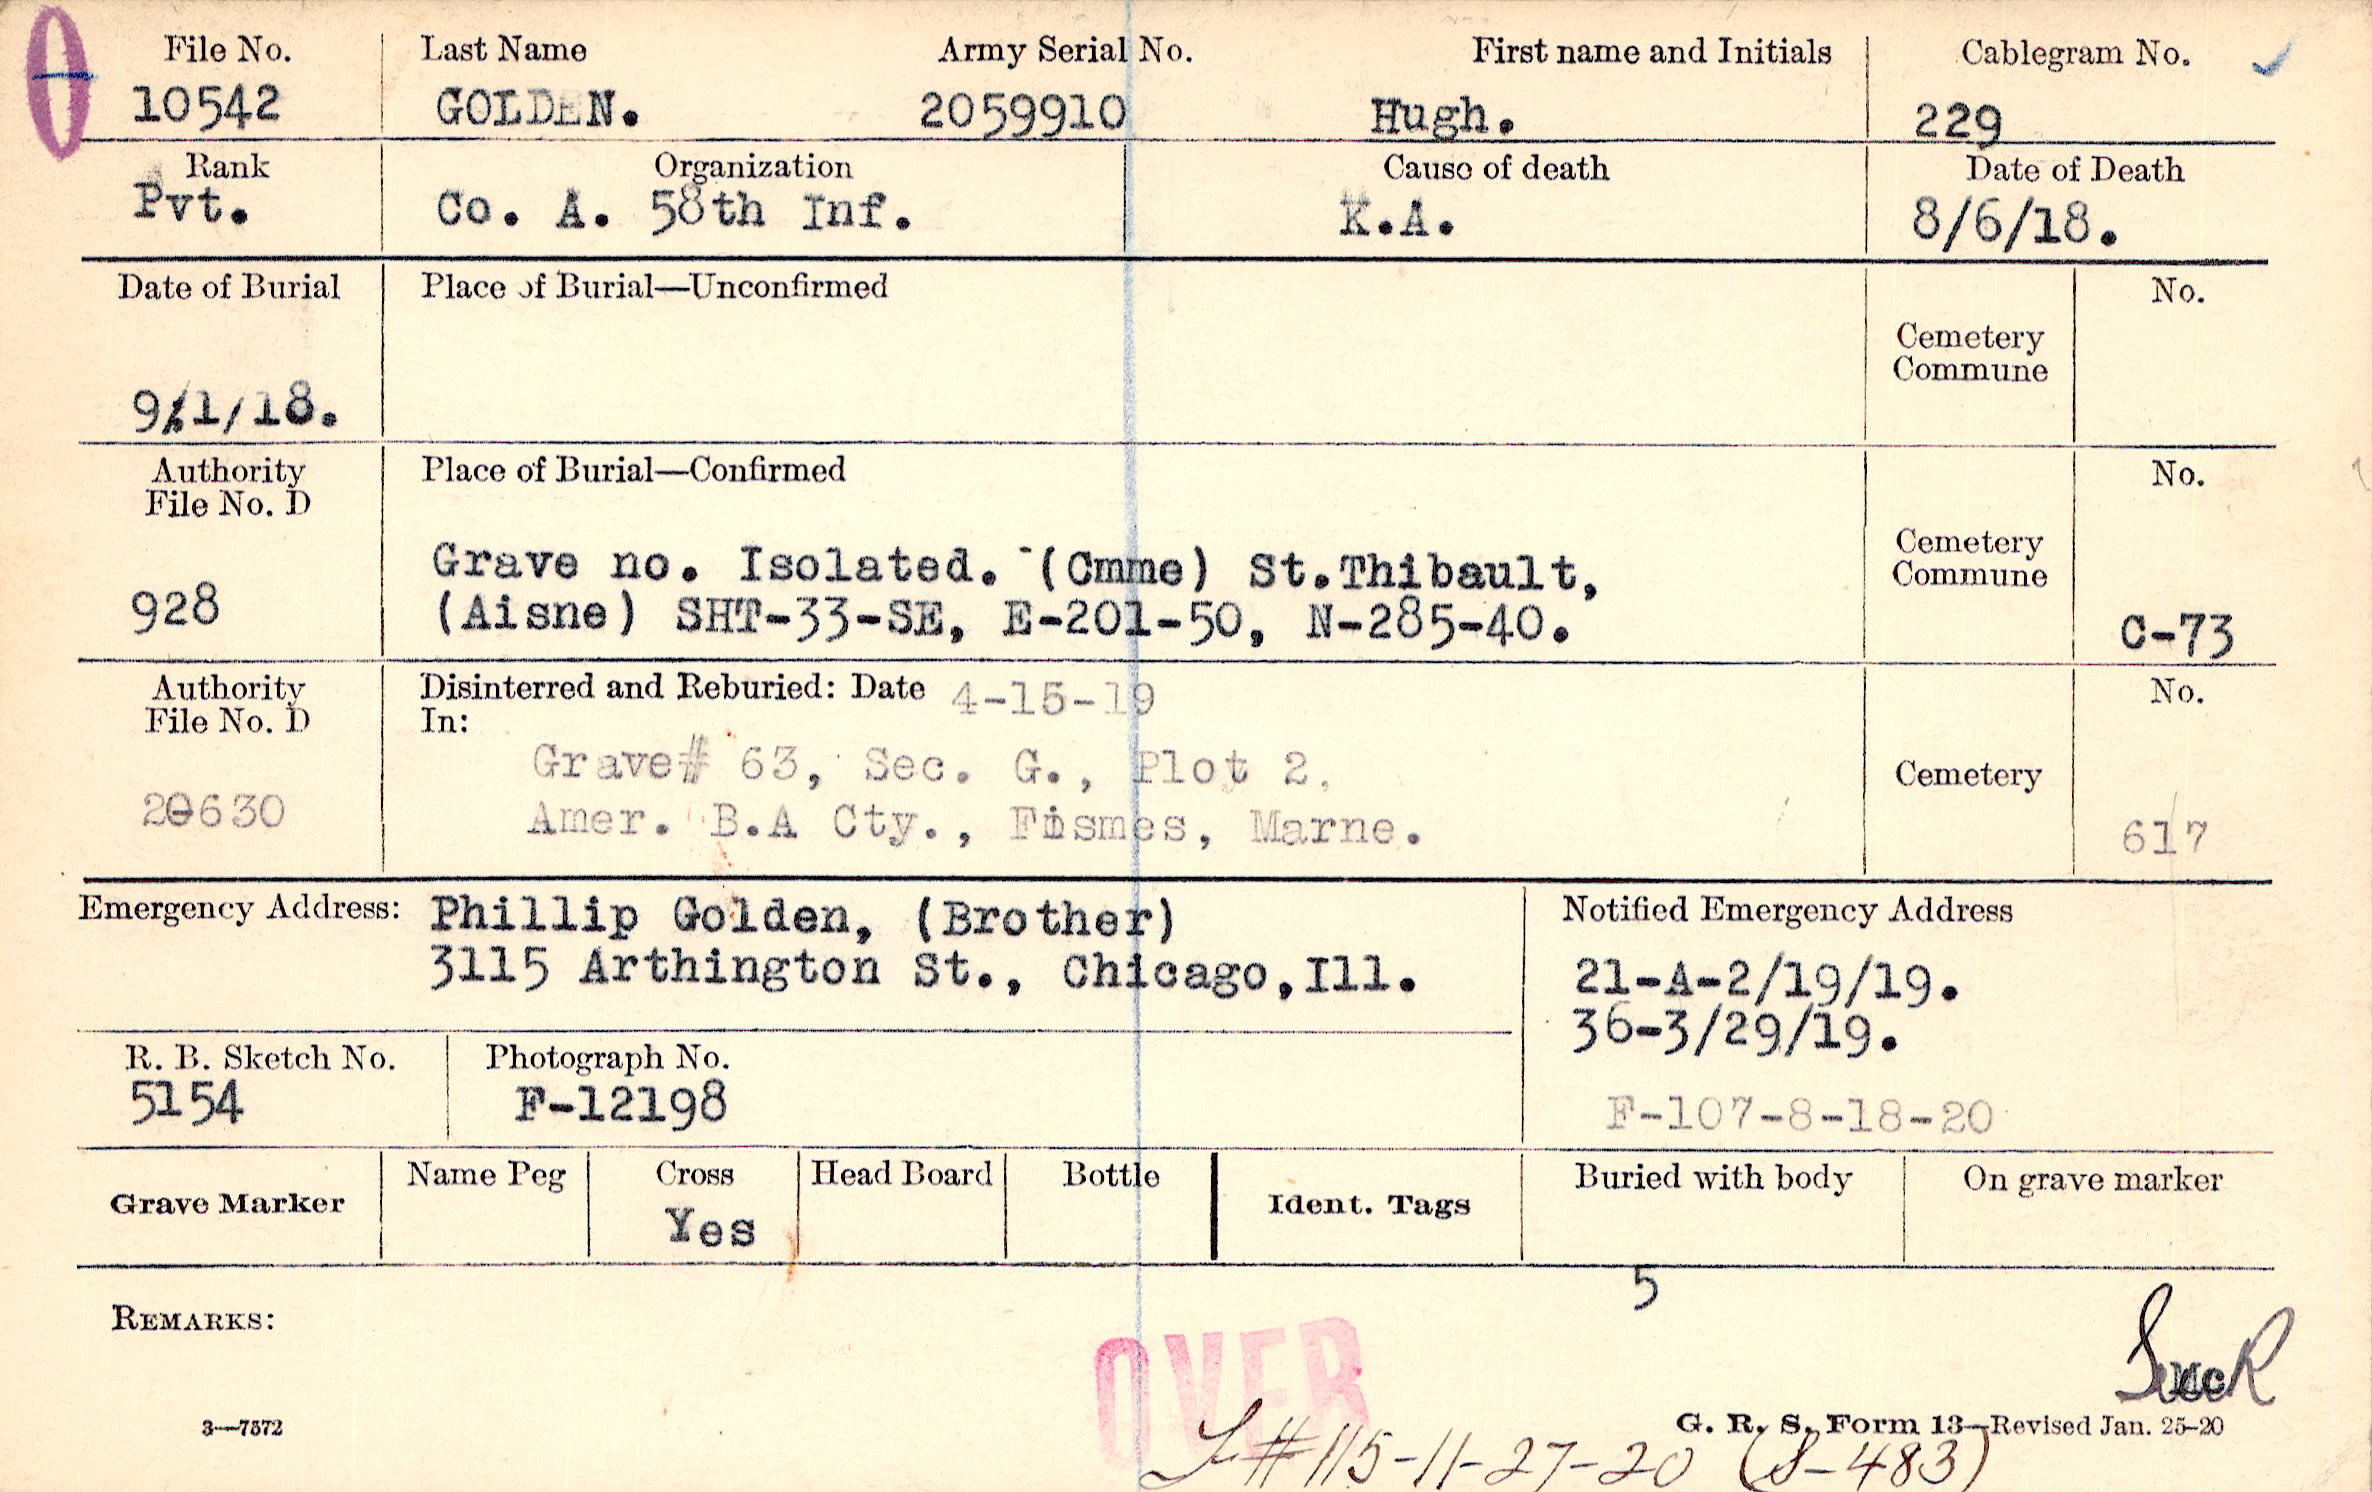 File No. Last Name Army Serial No. First name and Initials Cablegram No.
10542 GOLDEN. 2059910 Hugh. 229
Rank Organization Cause of death Date of Death
Pvt. Co. A. 58th Inf. K.A. 8/6/18.
Date of Burial Place of Burial—Unconfirmed No.
Cemetery
Commune
9/1/18.
Authority Place of Burial—Confirmed No.
File No. D
Cemetery
Commune
Grave no. Isolated. (Cmme) St.Thibault,
928 (Aisne) SHT-33-SE, E-201-50, N-285-40. C-73
Authority Disinterred and Reburied: Date 4-15-19 No.
File No. D In:
Grave# 63, Sec. G., Plot 2, Cemetery
20630 Amer. B.A Cty., Fismes, Marne. 617
Emergency Address: Phillip Golden, (Brother) Notified Emergency Address
3115 Arthington St., Chicago,Ill. 21-A-2/19/19.
36-3/29/19.
R. B. Sketch No. Photograph No.
5154 F-12198 F-107-8-18-20
Grave Marker Name Peg Cross Head Board Bottle Ident. Tags Buried with body On grave marker
Yes
5
REMARKS:
OVER
3—7572 G. R. S. Form 13—Revised Jan. 25-20
#115-11-27-20 (S-483)